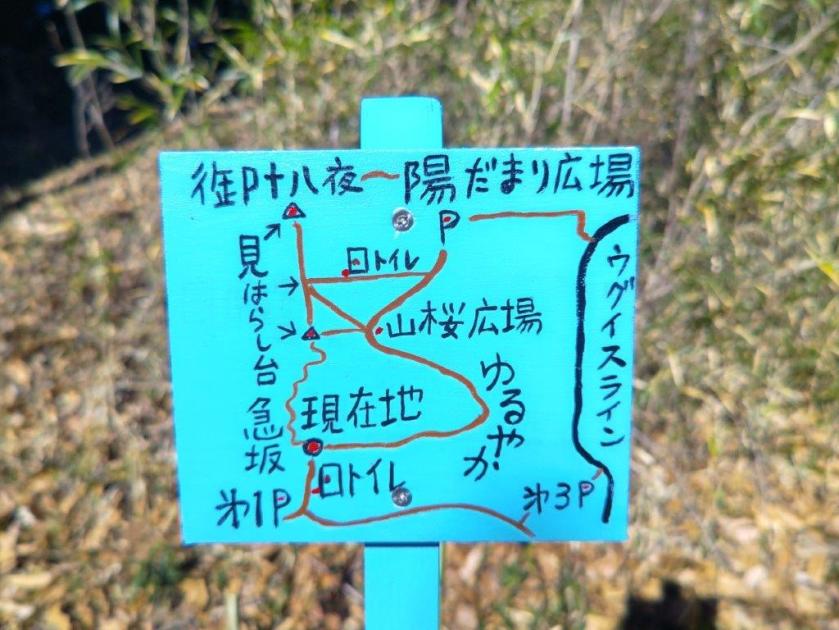 御叶八夜〜陽だまり広場
P
トイレ
見はらし台
山桜広場
ウグイスライン
ゆるやか
急坂
現在地
トイレ
第1P
第3P